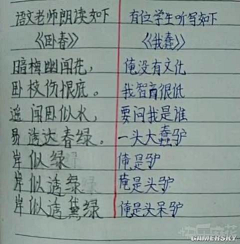 语文老师朗读如下
《卧春》
暗梅幽闻花,
卧枝伤恨底。
遥闻卧似水,
易透达春绿。
岸似绿
岸似透绿
岸似透黛绿
有位学生听写如下
《我蠢》
俺没有文化
我智商很低
要问我是谁
一头大蠢驴
俺是驴
俺是头驴
俺是头呆驴
GAMERSKY